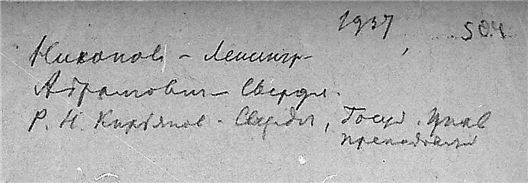 1937, 504
Никонов - Ленингр
Абрамович - Свердл.
Р. Н. Кирьянов - Свердл, Госуд. Унив
преподават